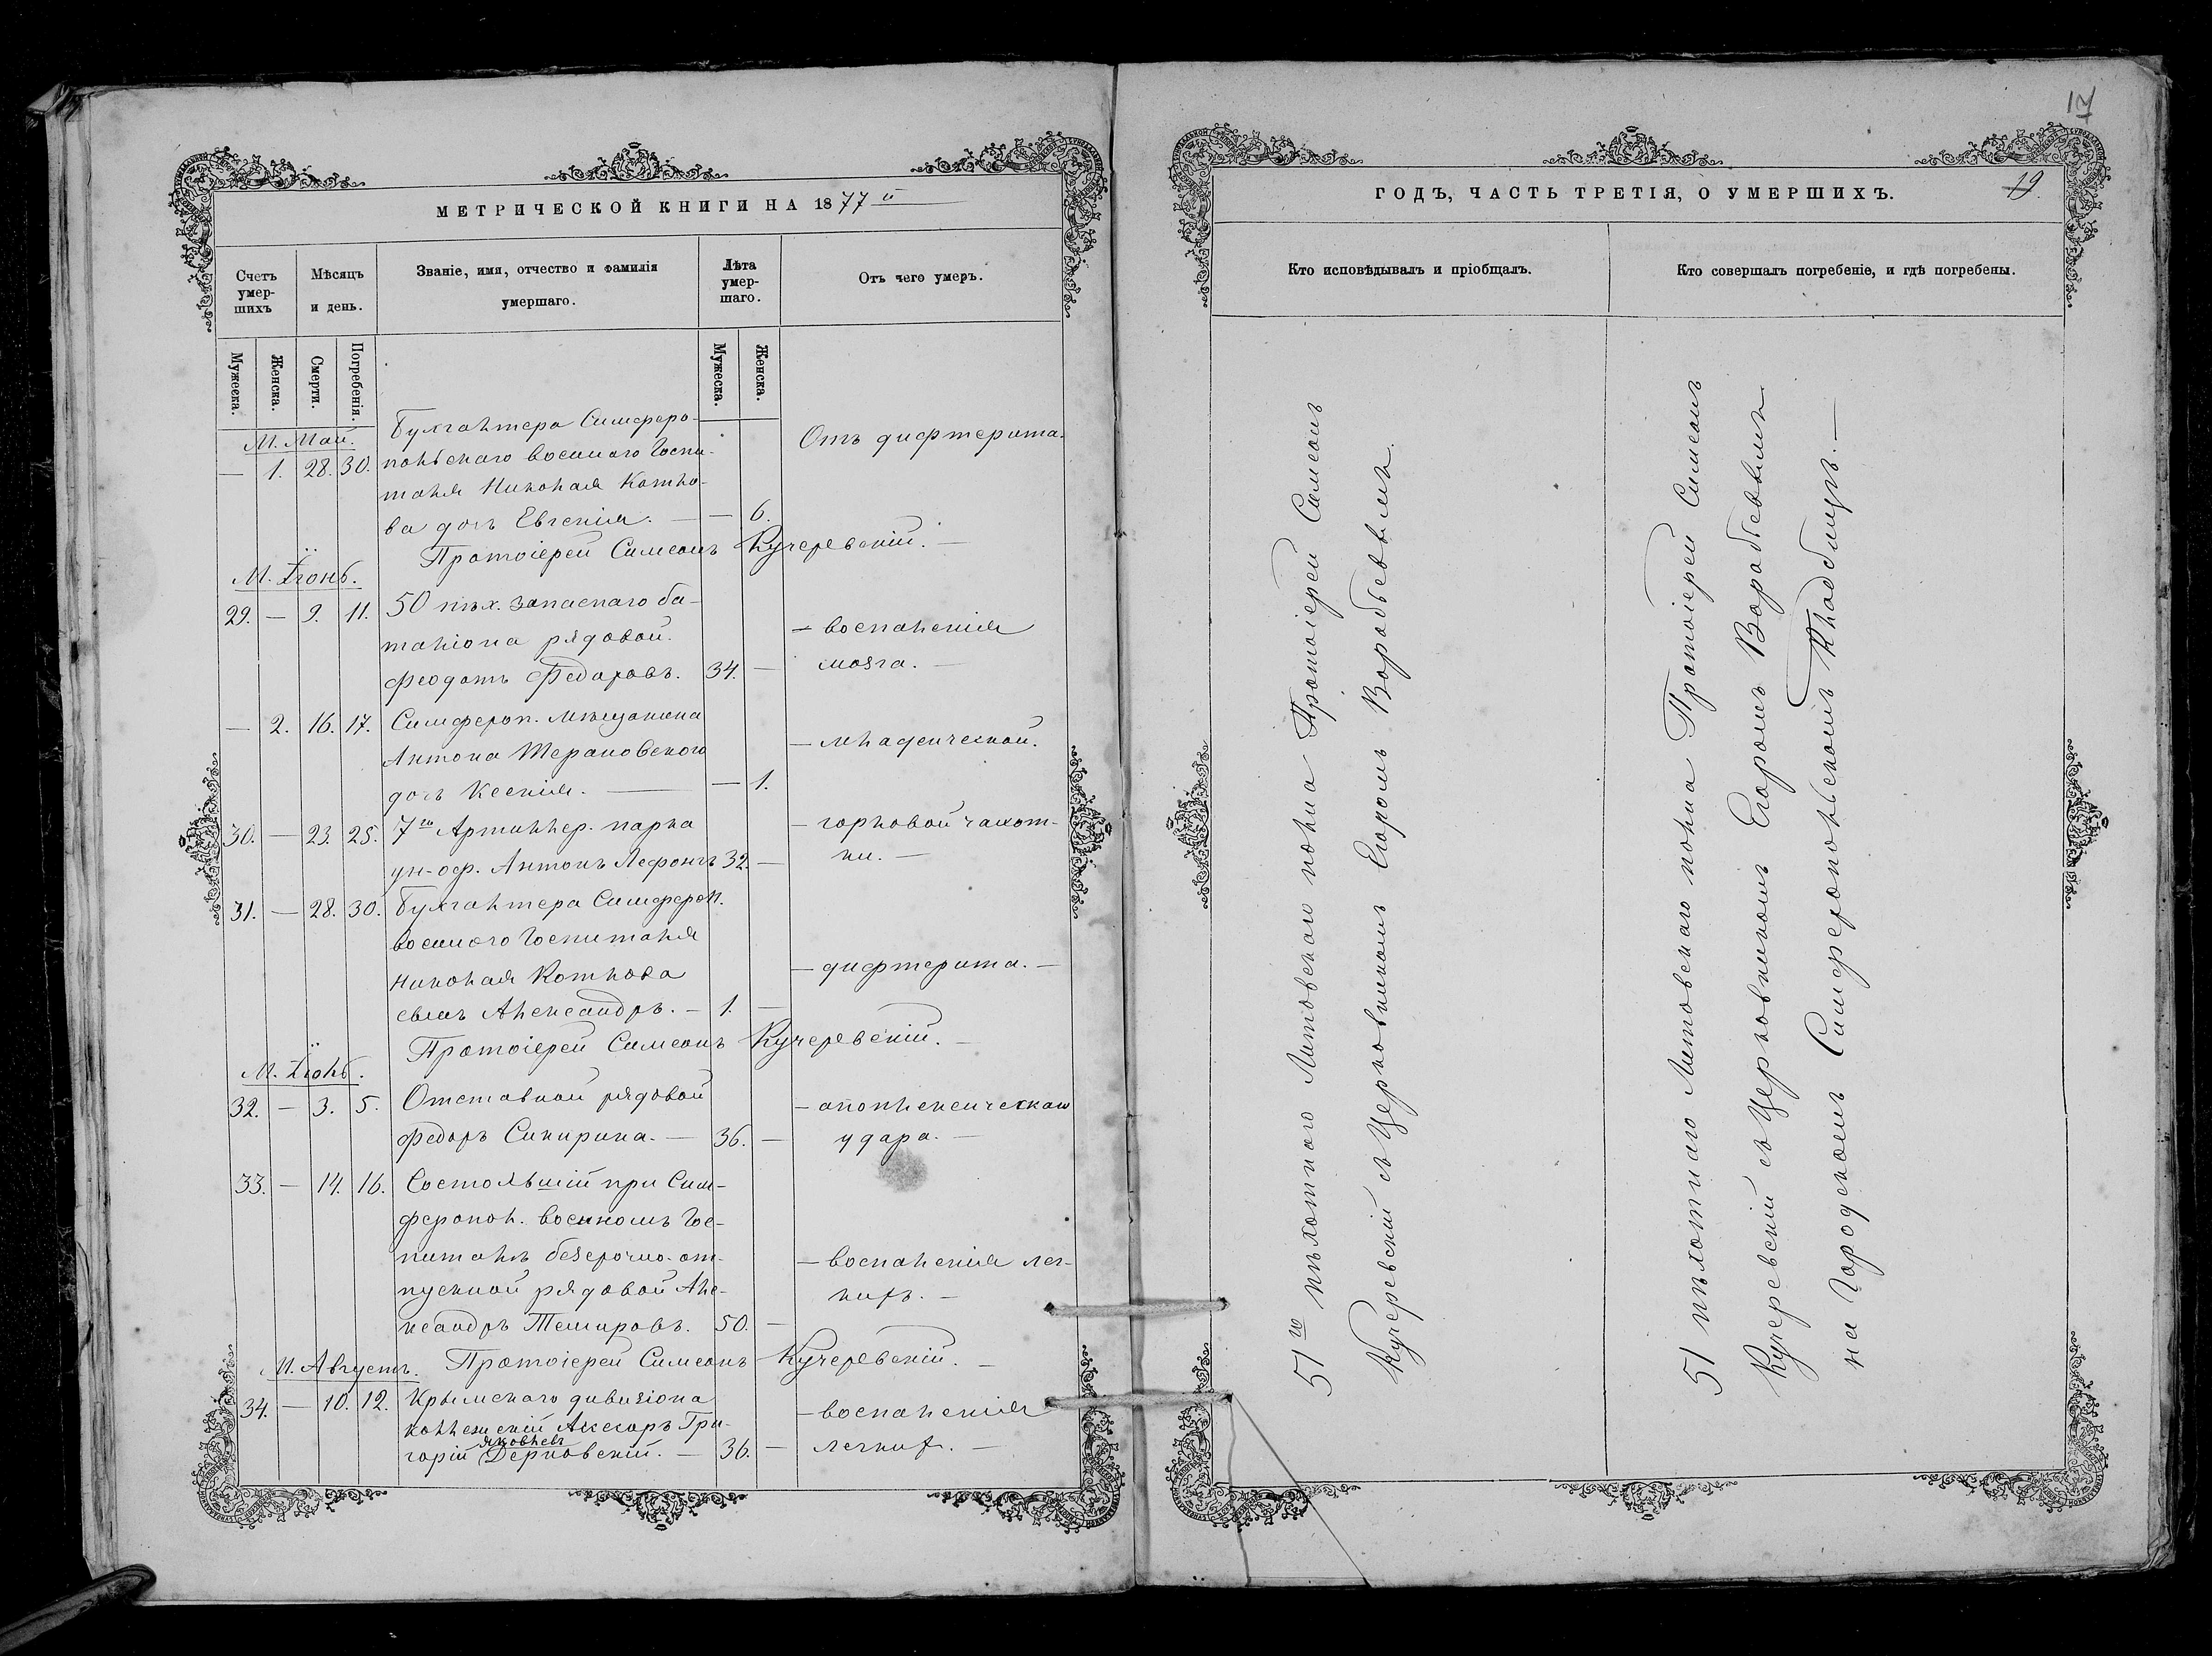 МЕТРИЧЕСКОЙ КНИГИ НА 1877й
Счетъ умер- шихъ
Мѣсяцъ и день.
Званіе, имя, отчество и фамилія умершаго.
Лѣта умер- шаго.
Отъ чего умеръ.
Мужеска. Женска. Смерти. Погребенія. Мужеска. Женска.
М. Май.
Бухгалтера Симферо-
— 1. 28. 30. польскаго военнаго Госпи- Отъ дифтерита.
таля Николая Котло-
ва дочь Евгенія. — — 6.
Протоіерей Симеонъ Кучеревскій. —
М. Іюнь.
29. — 9. 11. 50 пѣх. запаснаго ба-
таліона рядовой — воспаленія
Феодотъ Федоровъ. 34. — мозга. —
— 2. 16. 17. Симфероп. мѣщанина
Антона Терановского — младенческой.
дочь Ксенія. — — 1.
30. — 23. 25. 7го Артиллер. парка — горловой чахот-
ун-оф. Антонъ 32. — ки. —
31. — 28. 30. Бухгалтера Симфероп.
военного Госпиталя
Николая Котлова — дифтерита. —
сынъ Александръ. — 1. —
Протоіерей Симеонъ Кучеревскій. —
М. Іюль.
32. — 3. 5. Отставной рядовой — апоплексическаго
Федоръ Сикирина. — 36. — удара. —
33. — 14. 16. Состоявшій при Сим-
феропол. военномъ Гос-
питалѣ безсрочно-от- — воспаленія лег-
пускной рядовой Але- кихъ. —
ксандръ Темировъ. 50. —
М. Августъ. Протоіерей Симеонъ Кучеревскій. —
34. — 10. 12. Крымскаго дивизіона — воспаленія
коллежскій Асесоръ Гри-
Яковлевъ
горій Дерновскій. — 36. — легких. —
17
ГОДЪ, ЧАСТЬ ТРЕТІЯ, О УМЕРШИХЪ.
19.
Кто исповѣдывалъ и пріобщалъ.
Кто совершалъ погребеніе, и гдѣ погребены.
51го пѣхотнаго Литовскаго полка Протоіерей Симеонъ
Кучеревскій съ Церковникомъ Егоромъ Воробьевымъ.
51 пѣхотнаго Литовскаго полка Протоіерей Симеонъ
Кучеревскій съ Церковникомъ Егоромъ Воробьевымъ
на Городскомъ Симферопольскомъ Кладбищѣ. —